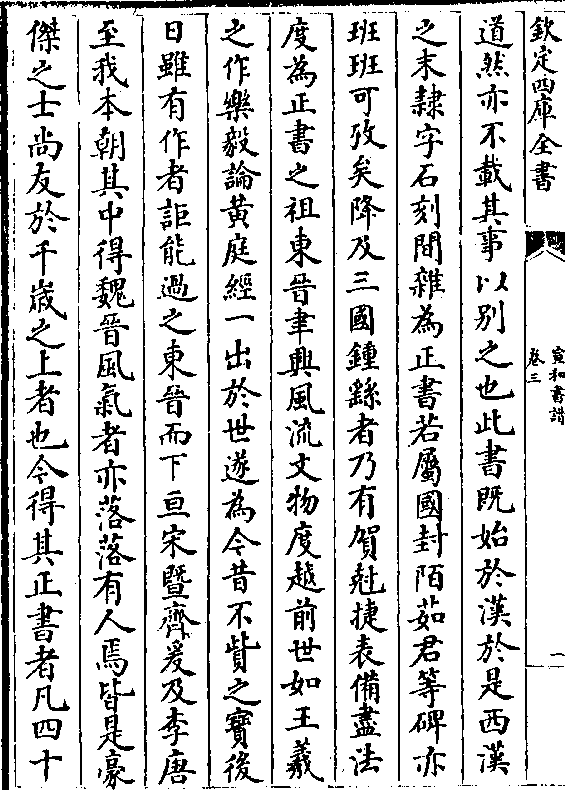 欽定四庫全書
宣和書譜
卷三
一
道然亦不載其事以別之也此書既始於漢於是西漢
之末隸字石刻間雜為正書若屬國封陌茹君等碑亦
班班可攷矣降及三國鍾繇者乃有賀尅捷表備盡法
度為正書之祖東晉聿興風流文物度越前世如王羲
之作樂毅論黃庭經一出於世遂為今昔不貲之寶後
日雖有作者詎能過之東晉而下亘宋暨齊爰及李唐
至我本朝其中得魏晉風氣者亦落落有人焉皆是豪
傑之士尚友於千歲之上者也今得其正書者凡四十